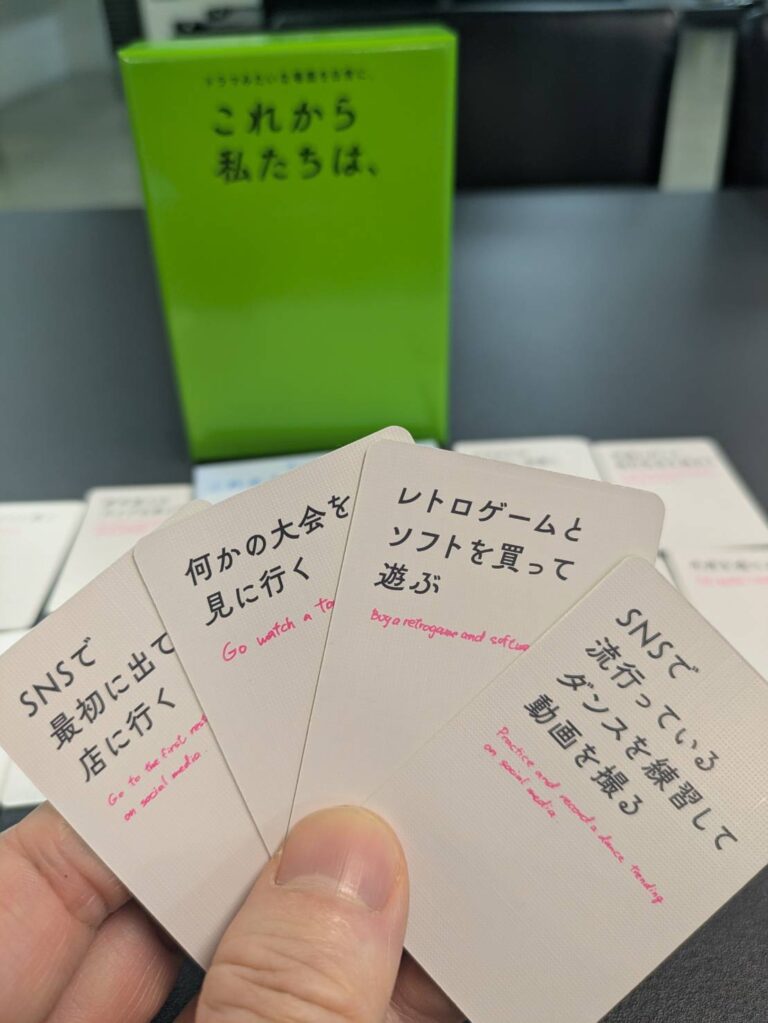 これから
私たちは、
SNSで
最初に出て
店に行く
Go to the first
on social media.
何かの大会を
見に行く
Go watch a
レトロゲームと
ソフトを買って
遊ぶ
Buy a retrogame and
SNSで
流行っている
ダンスを練習して
動画を撮る
Practice and record a dance trending
on social media.